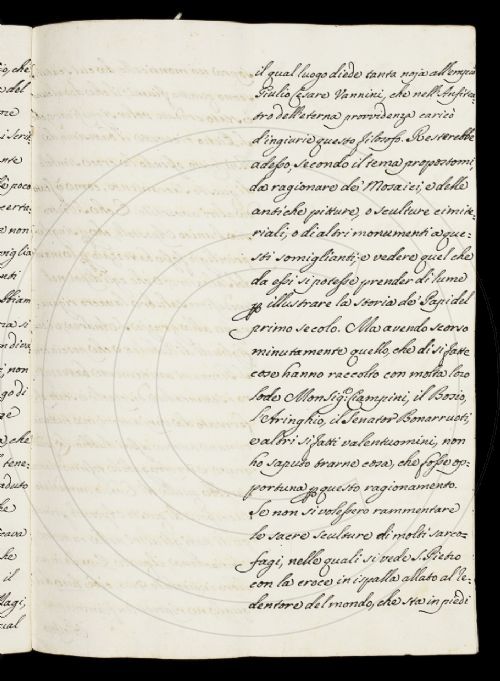 o, che
e del
i serit
nte
è poco
certa:
a non
niglia
nti
Abbiam
ria si
ndiva:
, non
go di
ge
a, che
tene:
aduto
he
cava
he
il
Magi,
ual
il qual luogo diede tanta noja all'empio
Giulio Cesare Vannini, che nell'Anfitea:
tro dell'eterna provvidenza caricò
d'ingiurie questo filosofo. Resterebbe
adesso, secondo il tema propostomi,
da ragionare de' Mosaici, e delle
antiche pitture, o sculture cimite:
riali, o di altri monumenti a que:
sti somiglianti, e vedere quel che
da essi si potesse prender di lume
p illustrare la Storia de' Papi del
primo secolo. Ma avendo scorso
minutamente quello, che di sì fatte
cose hanno raccolto con molta loro
lode Monsig.r Ciampini, il Bosio,
l'Aringhio, il Senator Bonarruoti,
e altri sì fatti valentuomini, non
ho saputo trarne cosa, che fosse op:
portuna p questo ragionamento.
Se non si volessero rammentare
le sacre sculture di molti sarco:
fagi, nelle quali si vede S. Pietro
con la croce in ispalla allato al Re:
dentore del mondo, che sta in piedi